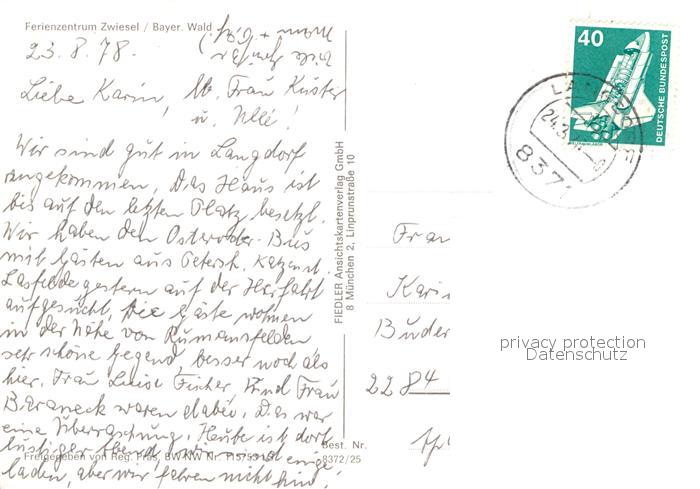 Ferienzentrum Zwiesel / Bayer. Wald
23.8.78.
Liebe Karin, lb. Frau Küster
u. Ulle!
Wir sind gut in Langdorf
angekommen, das Haus ist
bis auf den letzten Platz besetzt.
Wir haben den Osteroder Bus
mit Gästen aus Petersh. Katzenst.
Lasfelde gestern auf der Herfahrt
aufgesucht, die Gäste wohnen
in der Nähe von Rumansfelden
sehr schöne Gegend, besser noch als
hier. Frau Luise Fischer, und Frau
Baraneck waren dabei. Das war
eine Überraschung. Heute ist dort
lustiger Abend, wir sind einge
laden, aber wir fahren nicht hin!
Freigegeben von Reg. Präs. BW NW Nr.
Best. Nr.
8372/25
FIEDLER Ansichtskartenverlag GmbH
8 München 2, Linprunstraße 10
40
DEUTSCHE BUNDESPOST
8371
Karin
2284
privacy protection
Datenschutz